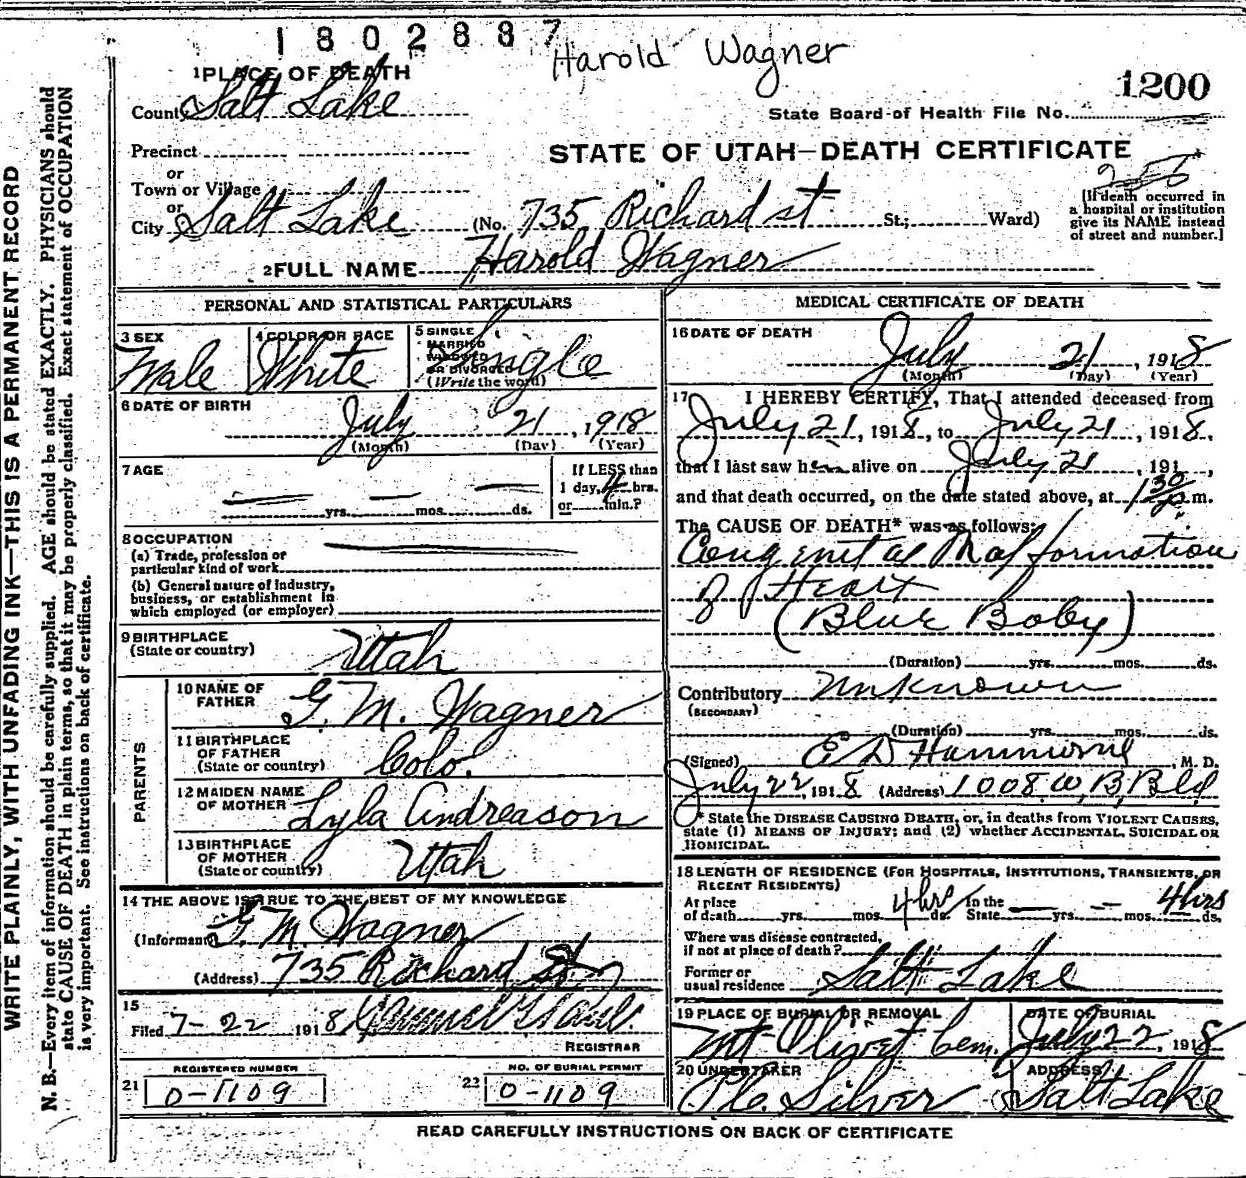 1802887
Harold Wagner
1200
State Board of Health File No.
1 PLACE OF DEATH
County Salt Lake
STATE OF UTAH—DEATH CERTIFICATE
Precinct
or
Town or Village
or
City Salt Lake (No. 735 Richard st St; Ward)
[If death occurred in
a hospital or institution
give its NAME instead
of street and number.]
2 FULL NAME Harold Wagner
PERSONAL AND STATISTICAL PARTICULARS
3 SEX Male
4 COLOR OR RACE White
5 SINGLE
MARRIED
WIDOWED
OR DIVORCED
(Write the word) Single
6 DATE OF BIRTH
July 21, 1918
(Month) (Day) (Year)
7 AGE
yrs. mos. ds.
If LESS than
1 day, 4 hrs.
or min.?
8 OCCUPATION
(a) Trade, profession or
particular kind of work
(b) General nature of industry,
business, or establishment in
which employed (or employer)
9 BIRTHPLACE
(State or country) Utah
PARENTS
10 NAME OF
FATHER G. M. Wagner
11 BIRTHPLACE
OF FATHER
(State or country) Colo.
12 MAIDEN NAME
OF MOTHER Lyla Andreason
13 BIRTHPLACE
OF MOTHER
(State or country) Utah
14 THE ABOVE IS TRUE TO THE BEST OF MY KNOWLEDGE
(Informant) G. M. Wagner
(Address) 735 Richard St.
15
Filed 7-22 1918
REGISTRAR
REGISTERED NUMBER
21 0-1109
NO. OF BURIAL PERMIT
22 0-1109
MEDICAL CERTIFICATE OF DEATH
16 DATE OF DEATH
July 21, 1918
(Month) (Day) (Year)
17 I HEREBY CERTIFY, That I attended deceased from
July 21, 1918, to July 21, 1918,
that I last saw him alive on July 21, 191 ,
and that death occurred, on the date stated above, at 1 30 p.m.
The CAUSE OF DEATH* was as follows:
Congenital Malformation
of Heart
(Blue Baby)
(Duration) yrs. mos. ds.
Contributory Unknown
(SECONDARY)
(Duration) yrs. mos. ds.
(Signed) E D Hammond, M. D.
July 22, 1918 (Address) 1008 W, B, Bld
* State the DISEASE CAUSING DEATH, or, in deaths from VIOLENT CAUSES,
state (1) MEANS OF INJURY; and (2) whether ACCIDENTAL, SUICIDAL OR
HOMICIDAL.
18 LENGTH OF RESIDENCE (FOR HOSPITALS, INSTITUTIONS, TRANSIENTS, OR
RECENT RESIDENTS)
At place
of death yrs. mos. 4 hrs ds. In the
State yrs. mos. 4 hrs ds.
Where was disease contracted,
if not at place of death?
Former or
usual residence Salt Lake
19 PLACE OF BURIAL OR REMOVAL
Mt Olivet Cem.
DATE OF BURIAL
July 22, 1918
20 UNDERTAKER
Silver
ADDRESS
Salt Lake
READ CAREFULLY INSTRUCTIONS ON BACK OF CERTIFICATE
WRITE PLAINLY, WITH UNFADING INK—THIS IS A PERMANENT RECORD
N. B.—Every item of information should be carefully supplied. AGE should be stated EXACTLY. PHYSICIANS should
state CAUSE OF DEATH in plain terms, so that it may be properly classified. Exact statement of OCCUPATION
is very important. See instructions on back of certificate.